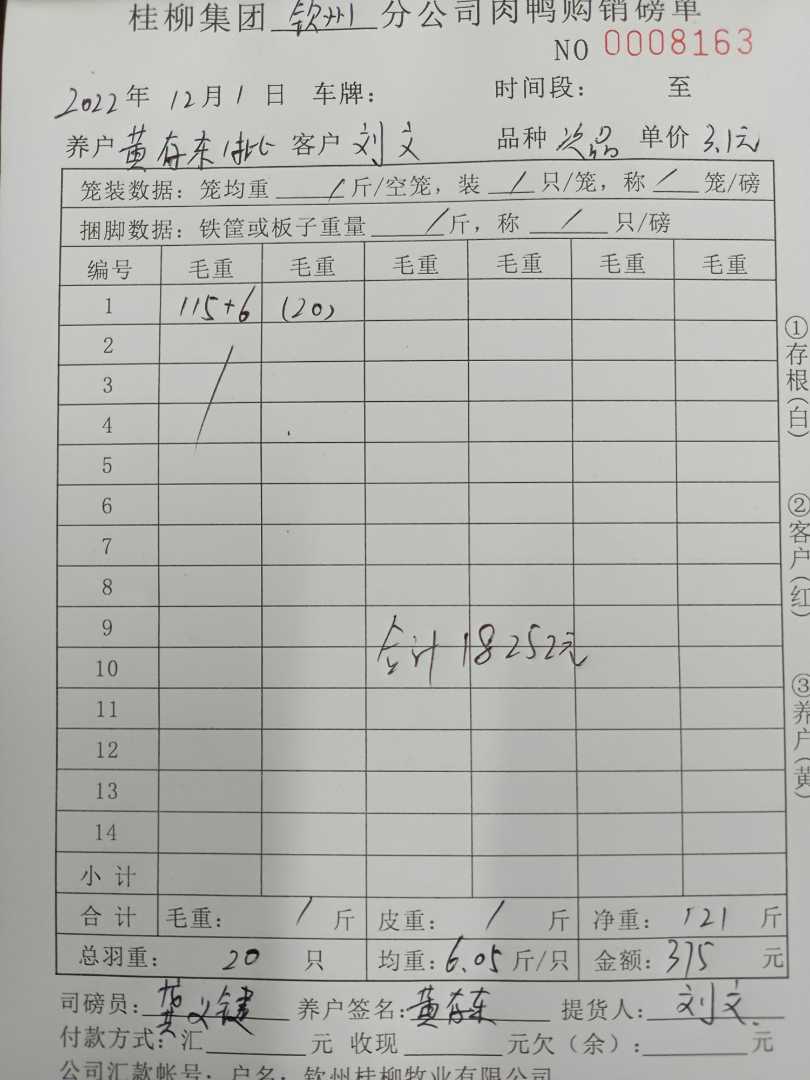 桂柳集团 钦州 分公司肉鸭购销磅单
NO 0008163
2022年 12月1日 车牌: 时间段: 至
养户 黄存东1批 客户 刘文 品种 次品 单价 3.1元
笼装数据: 笼均重 / 斤/空笼, 装 / 只/笼, 称 / 笼/磅
捆脚数据: 铁筐或板子重量 / 斤, 称 / 只/磅
编号 毛重 毛重 毛重 毛重 毛重 毛重
1 115+6 (20)
2
3
4
5
6
7
8
9
合计18252元
10
11
12
13
14
小计
合计 毛重: / 斤 皮重: / 斤 净重: 121 斤
总羽重: 20 只 均重: 6.05 斤/只 金额: 375 元
司磅员: 黄义键 养户签名: 黄存东 提货人: 刘文
付款方式: 汇 元 收现 元欠(余): 元
公司汇款帐号: 户名: 钦州桂柳牧业有限公司
①存根(白)
②客户(红)
③养户(黄)